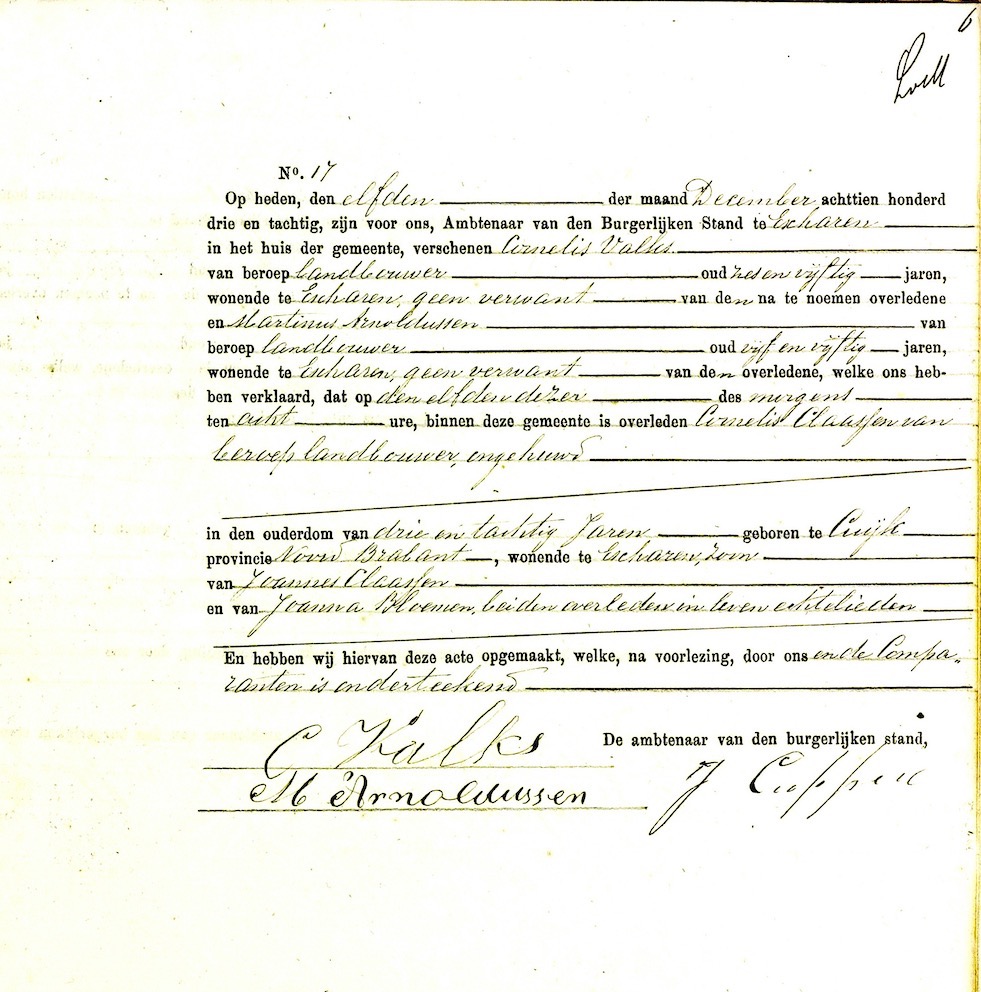 6
No. 17
Op heden, den elfden der maand December achttien honderd
drie en tachtig, zijn voor ons, Ambtenaar van den Burgerlijken Stand te Escharen
in het huis der gemeente, verschenen Cornelis Valks
van beroep landbouwer oud zes en vijftig jaren,
wonende te Escharen, geen verwant van den na te noemen overledene
en Martinus Arnoldussen van
beroep landbouwer oud vijf en vijftig jaren,
wonende te Escharen, geen verwant van den overledene, welke ons heb-
ben verklaard, dat op den elfden dezer des morgens
ten acht ure, binnen deze gemeente is overleden Cornelis Claassen van
beroep landbouwer, ongehuwd
in den ouderdom van drie en tachtig Jaren geboren te Cuijk
provincie Noord Brabant, wonende te Escharen, zoon
van Joannes Claassen
en van Joanna Bloemen, beiden overleden in leven echtelieden
En hebben wij hiervan deze acte opgemaakt, welke, na voorlezing, door ons en de Compa-
ranten is onderteekend
De ambtenaar van den burgerlijken stand,
C Valks
M Arnoldussen
J Cuppen